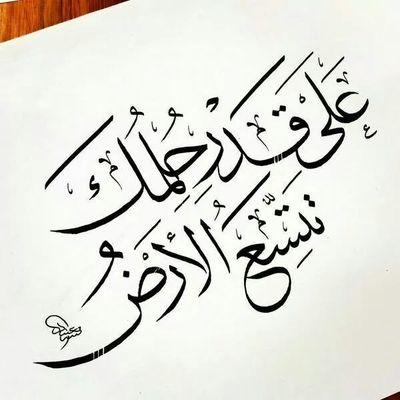 عَلَى قَدَرِ حُلمُك
تَتَّسِعُ الأَرْضُ